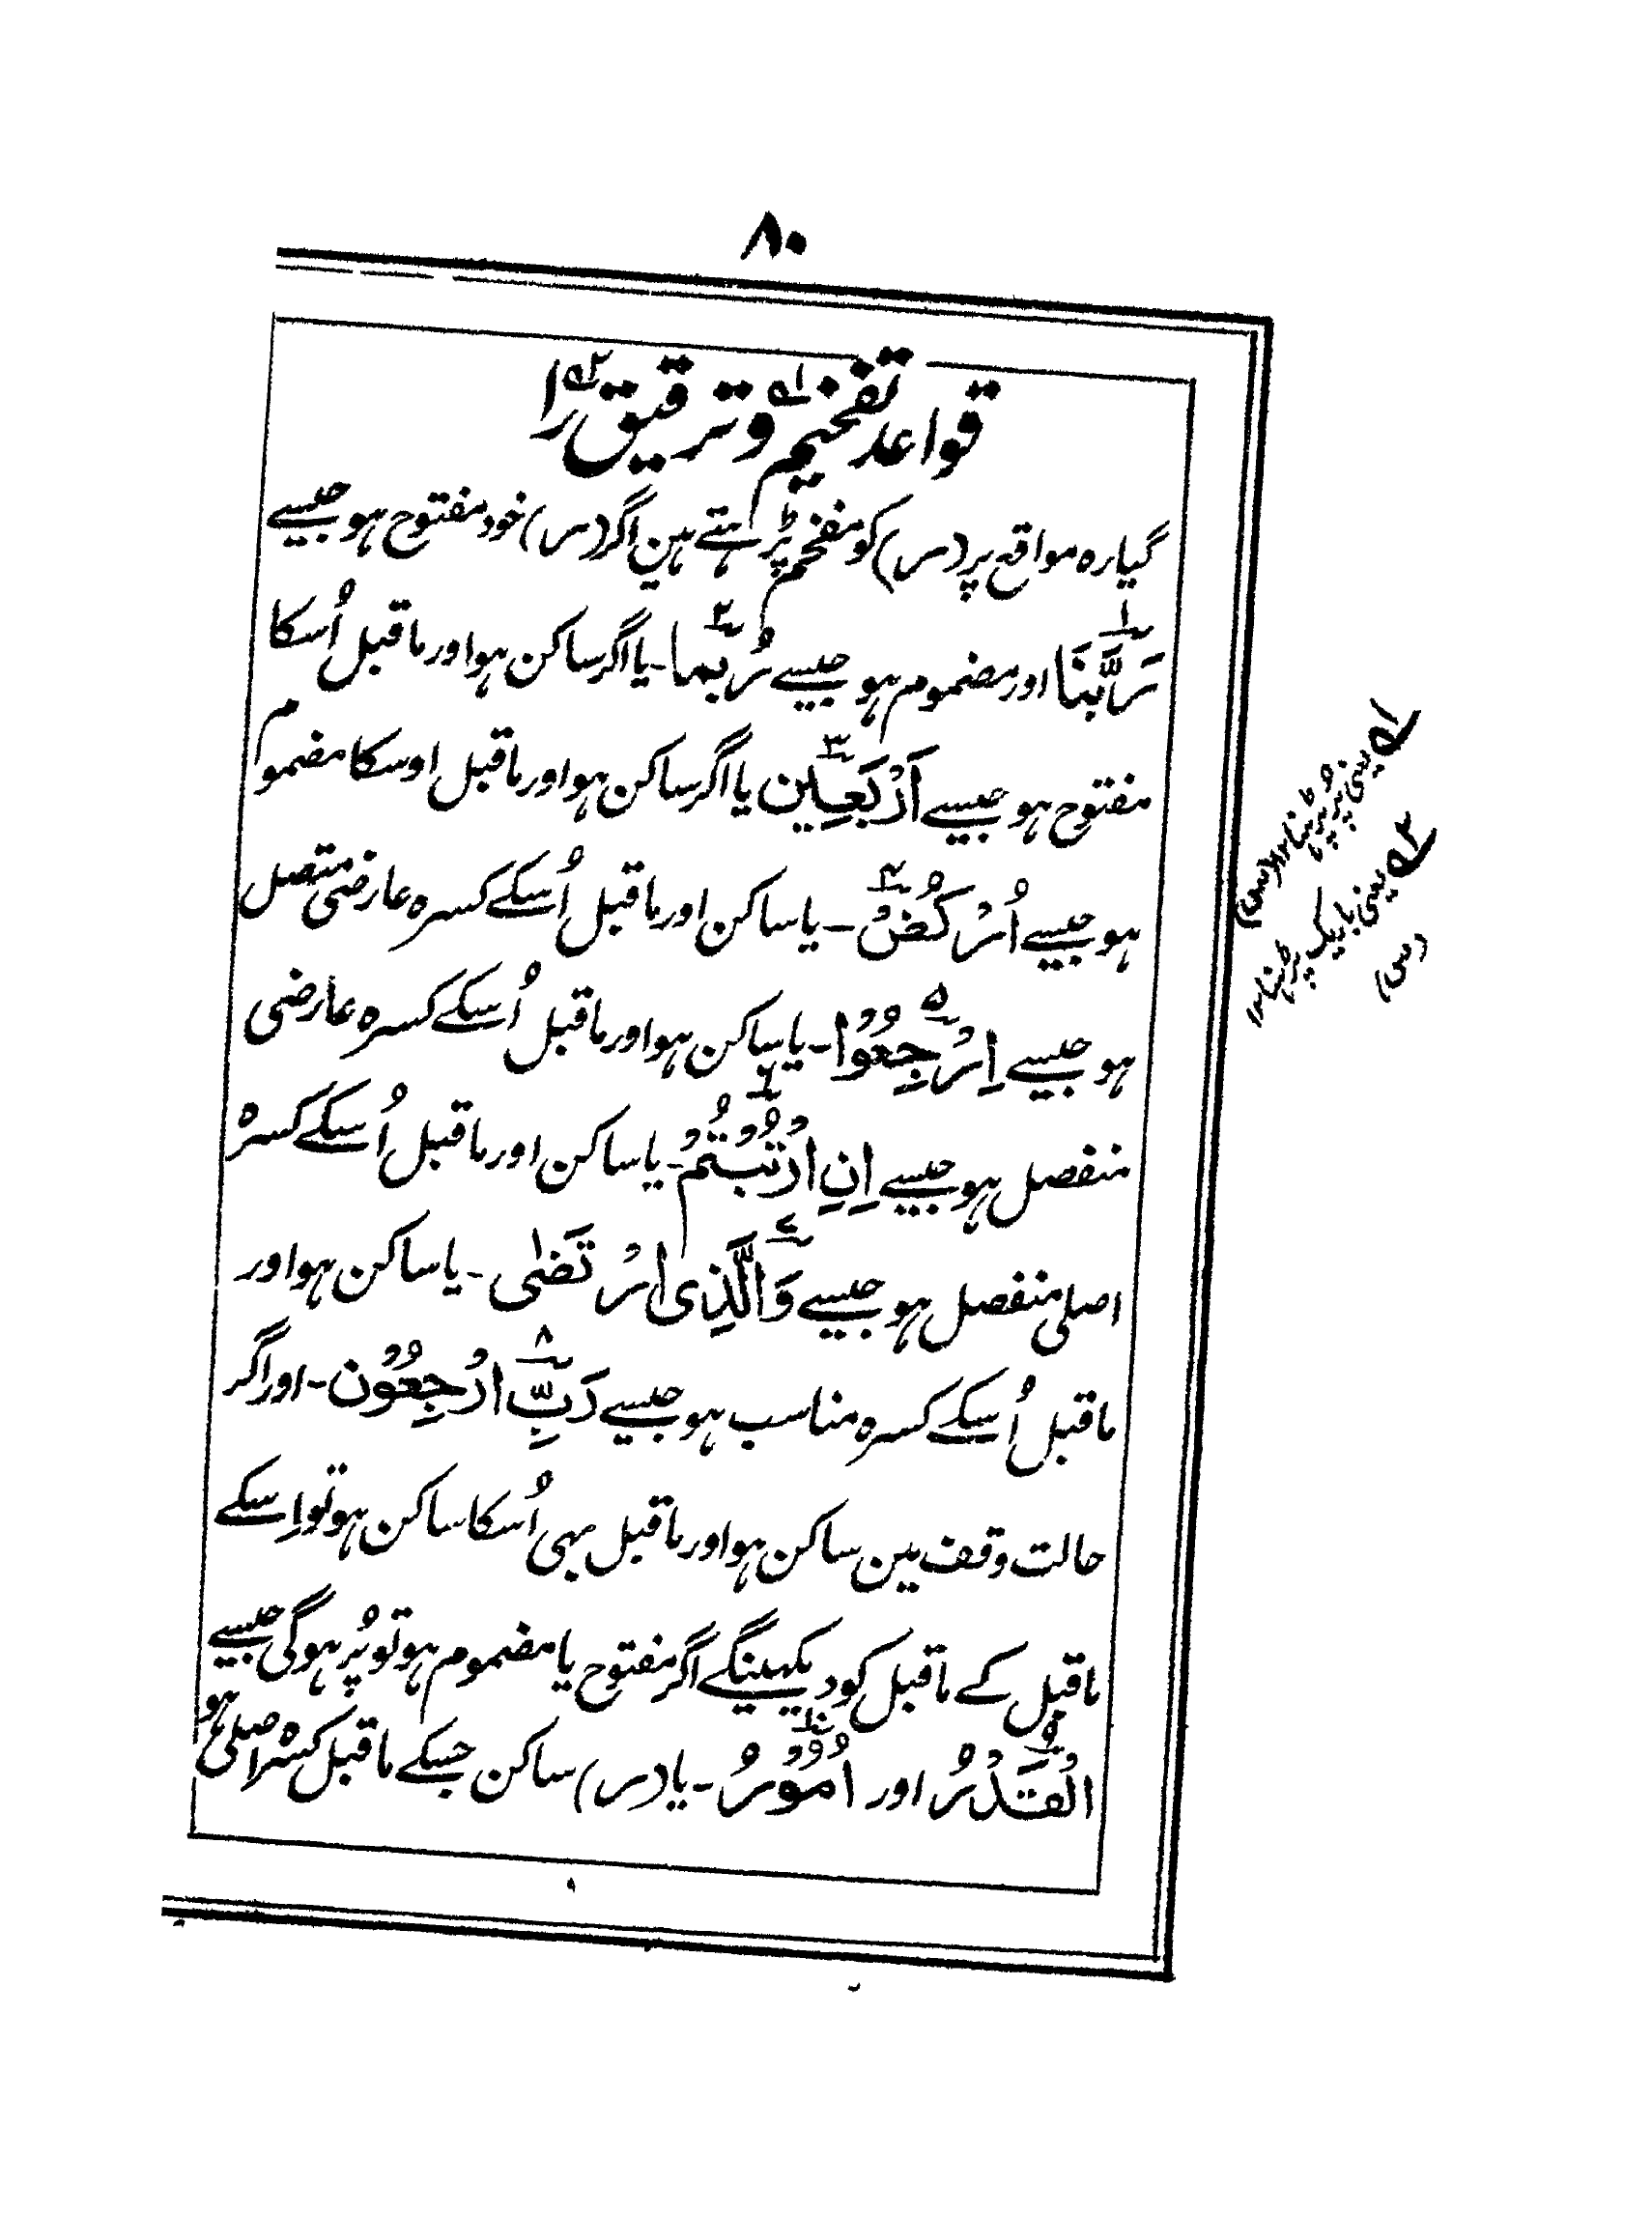 ۸۰
قواعد تفخیم۱ؔ و ترقیق۲ؔ را
گیارہ مواقع پر (ر) کو مفخم پڑہتے ہین اگر (ر) خود مفتوح ہو جیسے
رَبَّنَا۱ اور مضموم ہو جیسے رُبَمَا۲ ۔ یا اگر ساکن ہو اور ماقبل اُسکا
مفتوح ہو جیسے اَرْبَعِین۳ یا اگر ساکن ہو اور ماقبل اوسکا مضموم
ہو جیسے اُرْكُضْ۴ ۔ یا ساکن اور ماقبل اُسکے کسرہ عارضی متصل
ہو جیسے اِرْجِعُوْا۵ ۔ یا ساکن ہو اور ماقبل اُسکے کسرہ عارضی
منفصل ہو جیسے اِنِ ارْتَبْتُمْ۶ ۔ یا ساکن اور ماقبل اُسکے کسرہ
اصلی منفصل ہو جیسے وَالَّذِی ارْتَضٰی۷ ۔ یا ساکن ہو اور
ماقبل اُسکے کسرہ مناسب ہو جیسے رَبِّ ارْجِعُوْن۸ ۔ اور اگر
حالت وقف مین ساکن ہو اور ماقبل بہی اُسکا ساکن ہو تو اِسکے
ماقبل کے ماقبل کو دیکہینگے اگر مفتوح یا مضموم ہو تو پُر ہوگی جیسے
الْقَدْرْ۹ اور اُمُوْرْ۱۰ ۔ یا (ر) ساکن جسکے ماقبل کسرہ اصلی ہو
۱ؔ یعنی پُر پڑہنا ۱۲ (س)
۲ؔ یعنی باریک پڑہنا ۱۲
(س)